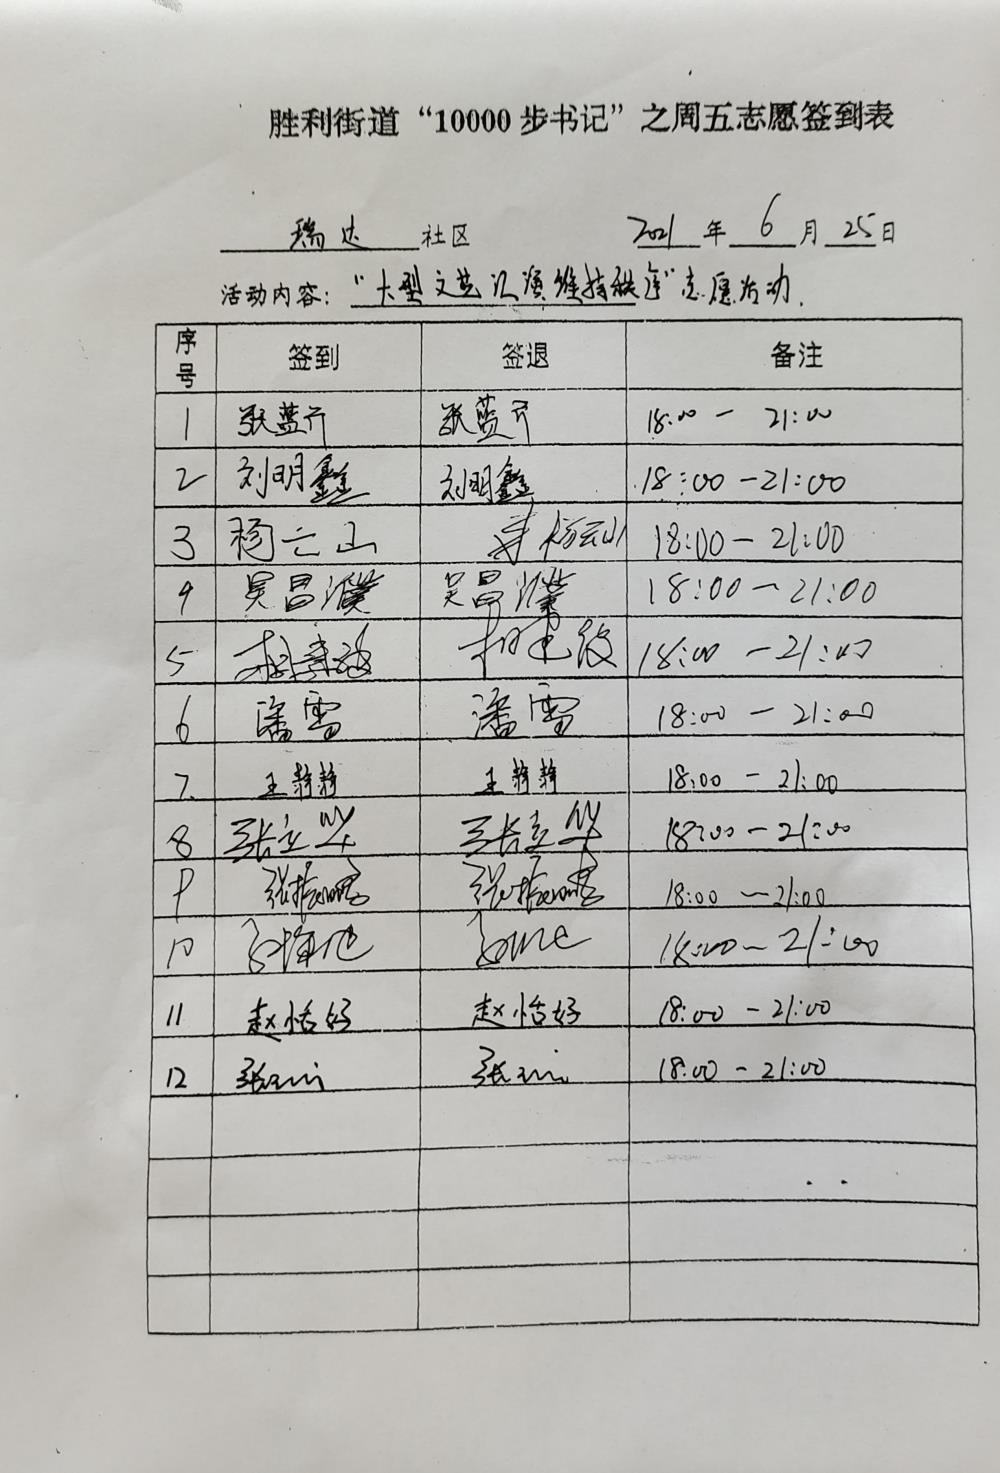 胜利街道“10000步书记”之周五志愿签到表
瑞达 社区 2021 年 6 月 25 日
活动内容：“大型文艺汇演维持秩序”志愿活动.
序号 签到 签退 备注
1 张蓝予 张蓝予 18:00 — 21:00
2 刘明鑫 刘明鑫 18:00 —21:00
3 杨云山 杨云山 18:00 — 21:00
4 吴昌濮 吴昌濮 18:00 —21:00
5 18:00 — 21:00
6 潘雪 潘雪 18:00 — 21:00
7. 王静静 王静静 18:00 — 21:00
8 张立华 张立华 18:00 — 21:00
9 18:00 —21:00
10 18:00— 21:00
11 赵恰好 赵恰好 18:00 — 21:00
12 18:00 — 21:00